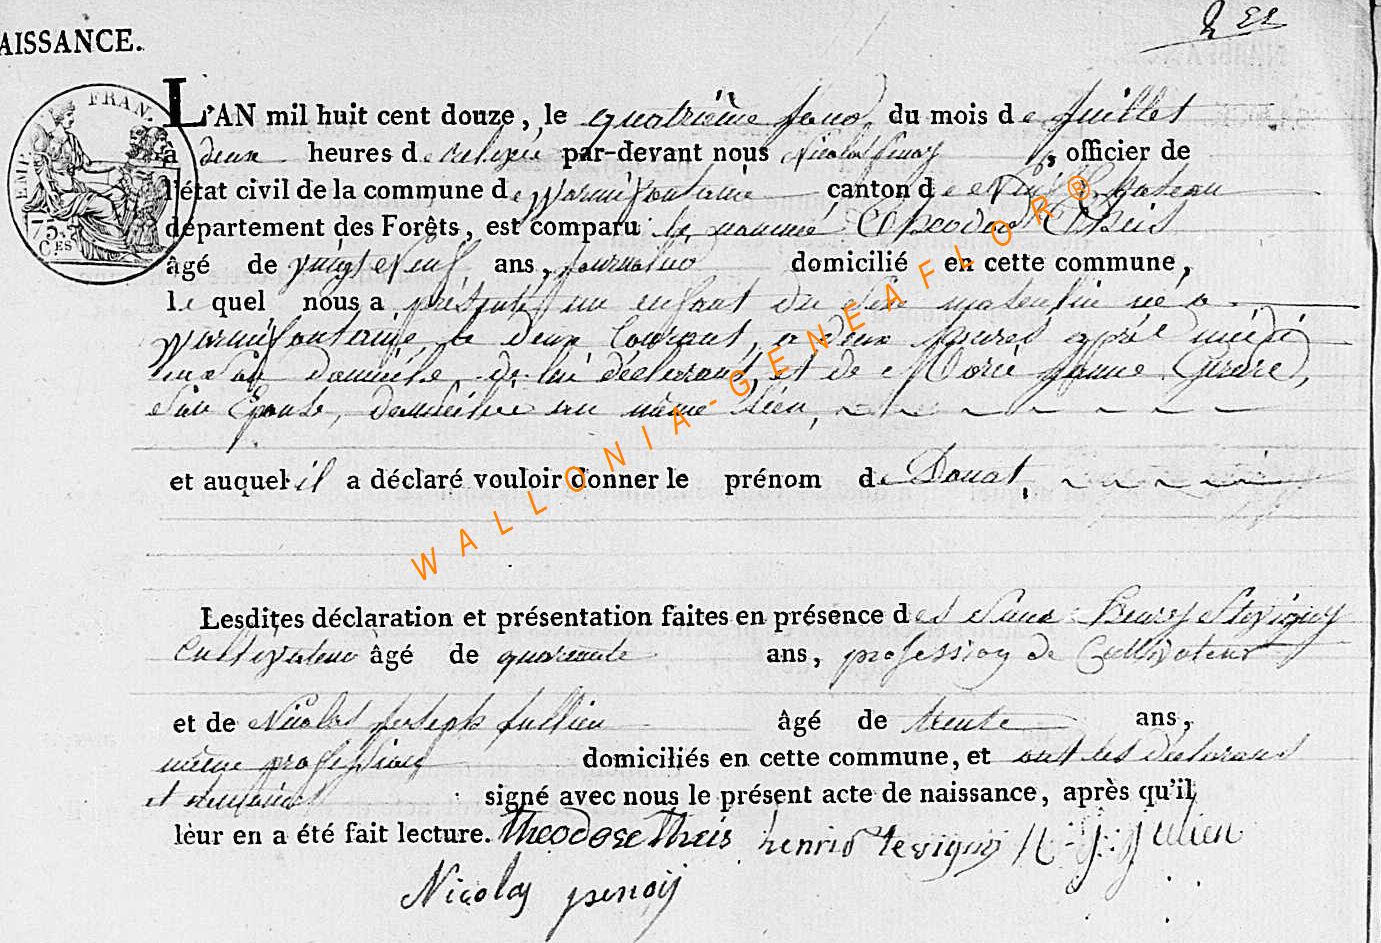 2 EL
AISSANCE.
EMP. FRAN.
75. CES
L'AN mil huit cent douze, le quatrième jour du mois de juillet
à deux heures de relevée par-devant nous Nicolas officier de
l'état civil de la commune de Warmifontaine canton de Neufchateau
département des Forêts, est comparu le nommé Theodore Theis
âgé de vingt neuf ans, journalier domicilié en cette commune,
le quel nous a présenté un enfant du sexe masculin né a
Warmifontaine le deux Courant, a deux heures après midi
domicile de lui déclarant, et de Marie Jeanne
Son Epouse, domiciliée au même lieu,
et auquel il a déclaré vouloir donner le prénom de Donat,
Lesdites déclaration et présentation faites en présence des Sieurs Henry Stevigny
Cultivateur âgé de quarante ans, profession de Cultivateur
et de Nicolas Joseph Jullien âgé de trente ans,
même profession domiciliés en cette commune, et ont les déclarans
et témoins signé avec nous le présent acte de naissance, après qu'il
leur en a été fait lecture. theodore theis henri stevigny N. J. julien
Nicolas penoy
WALLONIA-GENEAFLOR®